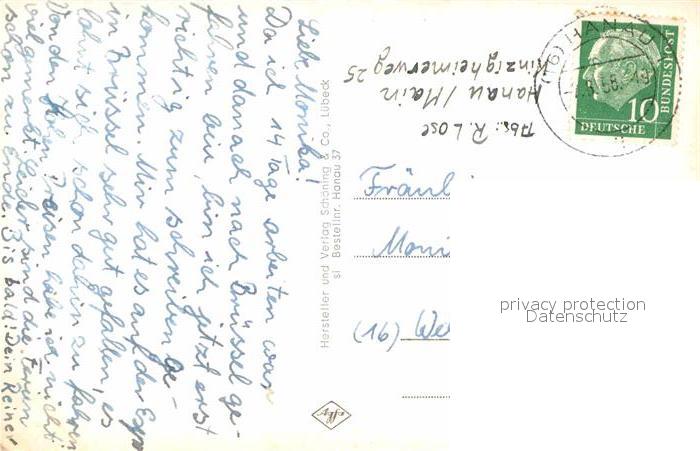 Liebe Monika!
Da ich 14 Tage arbeiten war
und danach nach Brüssel ge-
fahren bin, bin ich jetzt erst
richtig zum schreiben ge-
kommen. Mir hat es auf der Expo
in Brüssel sehr gut gefallen, es
lohnt sich schon dahin zu fahren
Von den hohen Preisen habe ich nicht
viel gemerkt. Leider sind die Ferien
schon zu Ende. Bis bald! Dein Reiner
Hersteller und Verlag Schöning & Co., Lübeck
sl Bestellnr. Hanau 37
Abs.: R. Lose
Hanau / Main
Kinzigheimerweg 25
(16) HANAU
58
10
DEUTSCHE
BUNDESPOST
Fräul
Moni
(16) We
privacy protection
Datenschutz
Agfa